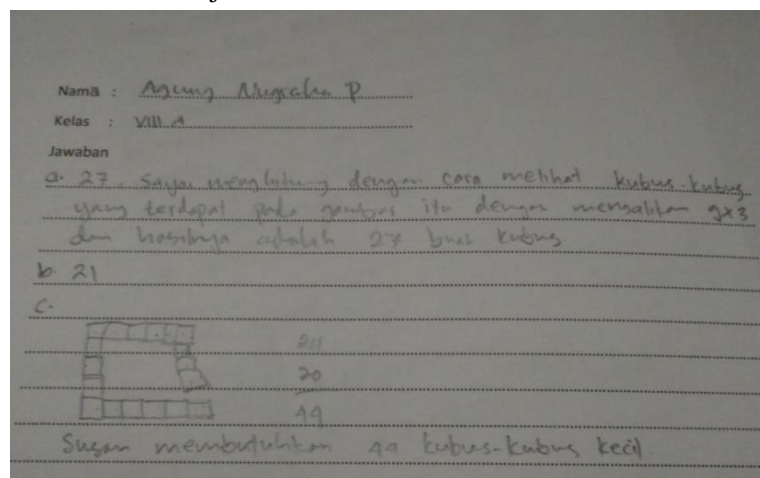 Nama : Agung Nugraha P
Kelas : VIII A
Jawaban
a. 27. Saya menghitung dengan cara melihat kubus-kubus
yang terdapat pada gambar itu dengan mengalikan 9x3
dan hasilnya adalah 27 buah kubus
b. 21
c.
24
20
44
Susan membutuhkan 44 kubus-kubus kecil